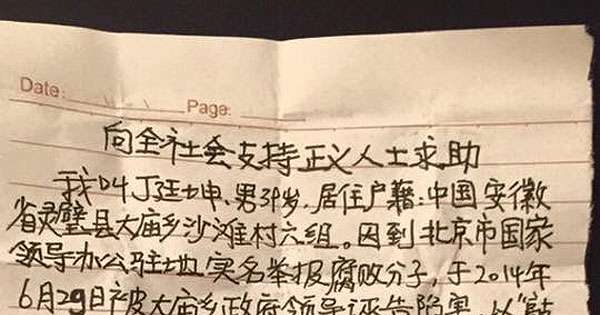 Date: Page:
向全社会支持正义人士求助
我叫丁廷坤、男39岁，居住户籍：中国安徽
省灵璧县大庙乡沙滩村六组。因到北京市国家
领导办公驻地实名举报腐败分子，于2014年
6月29日被大庙乡政府领导诬告陷害，以"敲